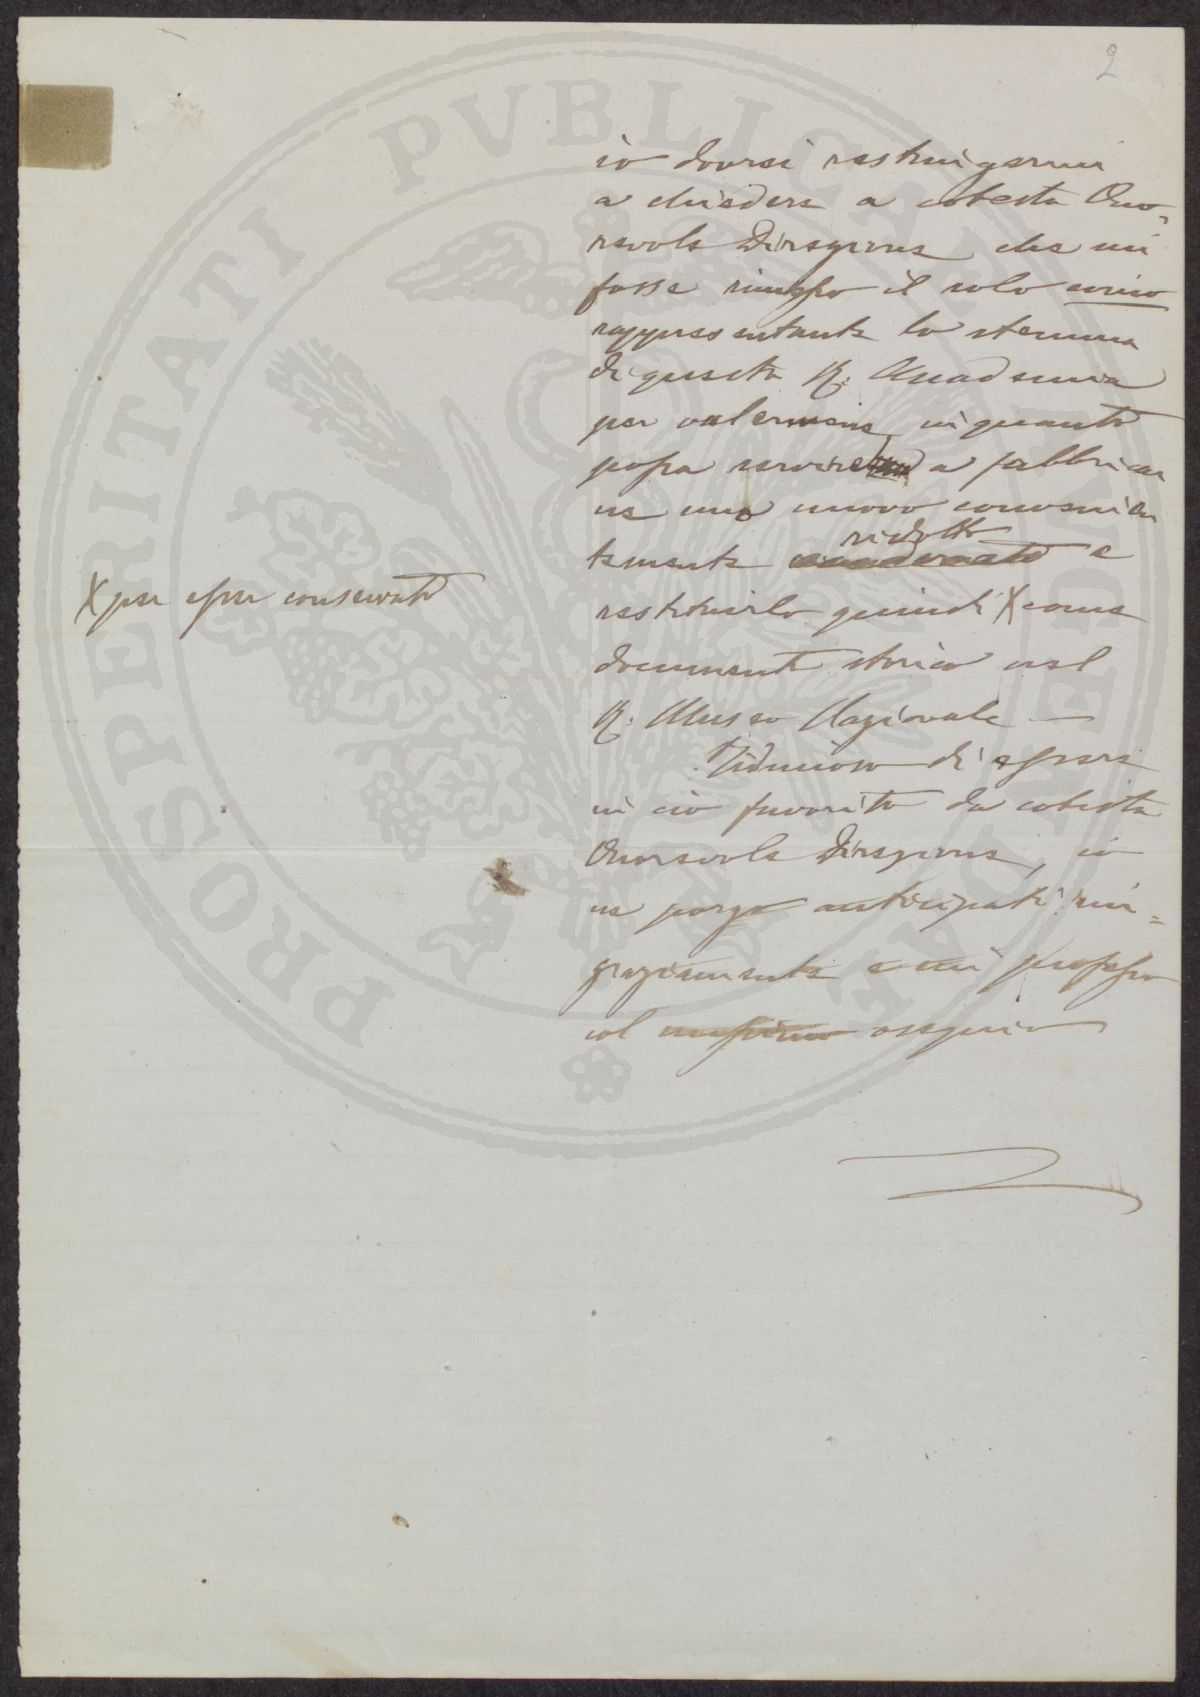 2
io dovrei restringermi
a chiedere a codesta Ono-
revole Direzione che mi
fosse rimesso il solo conio
rappresentante lo stemma
di questa R. Accademia
per valermene, in quanto
possa servire a fabbricar
ne uno nuovo convenien
temente ridotto e
restituirlo quindi X come
documento storico nel
R. Museo Nazionale —
X per esser conservato
Fiducioso di essere
in ciò favorito da codesta
Onorevole Direzione, io
ne porgo anticipati rin=
graziamenti e mi professo
col massimo ossequio
PROSPERITATI PVBLICAE AVGENDAE